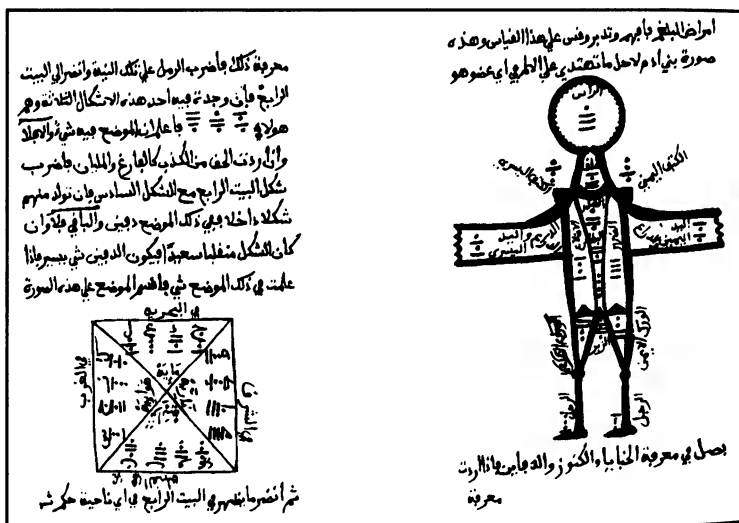 امراض البلغم فافهم وتدبر وقس على هذا القياس وهذه
صورة بني ادم لاجل ما تهتدي على الامر في اي عضو هو
الراس
الكتف اليمنى
الكتف اليسرى
اليد اليمنى
واليد اليسرى
الورك الايمن
الرجل
الرجل
فصل في معرفة الخبايا والكنوز والدفاين فاذا اردت
معرفة
معرفة ذلك فاضرب الرمل على تلك النية وانضر الى البيت
الرابع فان وجدت فيه احد هذه الاشكال الثلاثة وهم
هولاء فاعلم ان الموضع فيه شي والا فلا
وان اردت الحق من الكذب كالفارغ والمليان فاضرب
شكل البيت الرابع مع الشكل السادس فان تولد منهم
شكلا داخلا ففي ذلك الموضع دفين والباقي فلا وان
كان الشكل منقلبا سعيدا فيكون الدفين شي يسير فاذا
علمت في ذلك الموضع شي فاقسم الموضع على هذه الصورة
في البحرية
في الغرب
في الشرق
مايية
هوايية
ثم انضر ما يظهر في البيت الرابع في اي ناحية حكم ثم